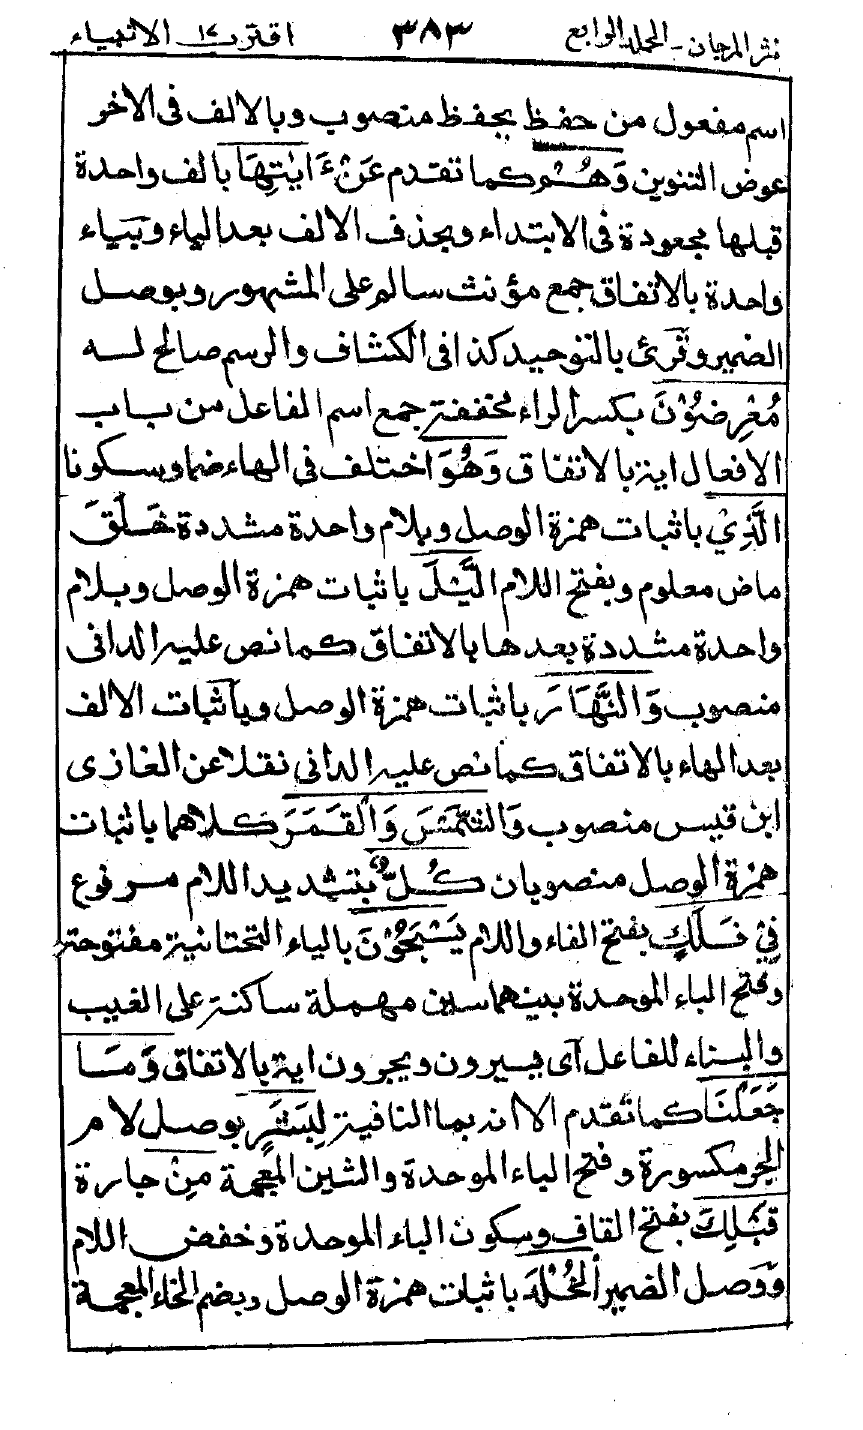 نثر المرجان - المجلد الرابع ٣٨٣ اقترب ١٧ الانبیاء
اسم مفعول من حفظ یحفظ منصوب وبالالف فی الاخر
عوض التنوین وَهُمْ کما تقدم عَنْ ءَایٰتِهَا بالف واحدة
قبلها مجعودة فی الابتداء وبحذف الالف بعد الیاء وبیاء
واحدة بالاتفاق جمع مؤنث سالم علی المشهور وبوصل
الضمیر وقرئ بالتوحید کذا فی الکشاف والرسم صالح له
مُعْرِضُوْنَ بکسر الراء مخففة جمع اسم الفاعل من باب
الافعال ایة بالاتفاق وَهُوَ اختلف فی الهاء ضما وسکونا
الَّذِیْ باثبات همزة الوصل وبلام واحدة مشددة خَلَقَ
ماض معلوم وبفتح اللام الَّیْلَ باثبات همزة الوصل وبلام
واحدة مشددة بعدها بالاتفاق کما نص علیه الدانی
منصوب وَالنَّهَارَ باثبات همزة الوصل وباثبات الالف
بعد الهاء بالاتفاق کما نص علیه الدانی نقلا عن الغازی
ابن قیس منصوب وَالشَّمْسَ وَالْقَمَرَ کلاهما باثبات
همزة الوصل منصوبان کُلٌّ بتشدید اللام مرفوع
فِیْ فَلَكٍ بفتح الفاء واللام یَسْبَحُوْنَ بالیاء التحتانیة مفتوحة
وفتح الباء الموحدة بینهما سین مهملة ساکنة علی الغیب
والبناء للفاعل آی یسیرون ویجرون ایة بالاتفاق وَمَا
جَعَلْنَا کما تقدم الا انه بما النافیة لِبَشَرٍ بوصل لام
الجر مکسورة وفتح الباء الموحدة والشین المعجمة مِنْ جارة
قَبْلِكَ بفتح القاف وسکون الباء الموحدة وخفض اللام
ووصل الضمیر الْخُلْدَ باثبات همزة الوصل وبضم الخاء المعجمة